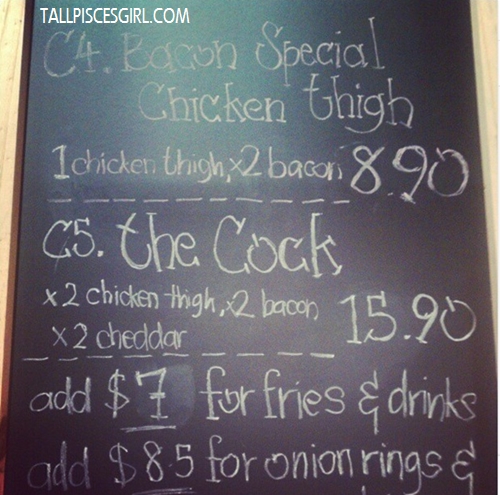 TALLPISCESGIRL.COM
C4. Bacon Special
Chicken thigh
1 chicken thigh, x2 bacon 8.90
C5. the Cock
x2 chicken thigh, x2 bacon 15.90
x2 cheddar
add $7 for fries & drinks
add $8.5 for onion rings &